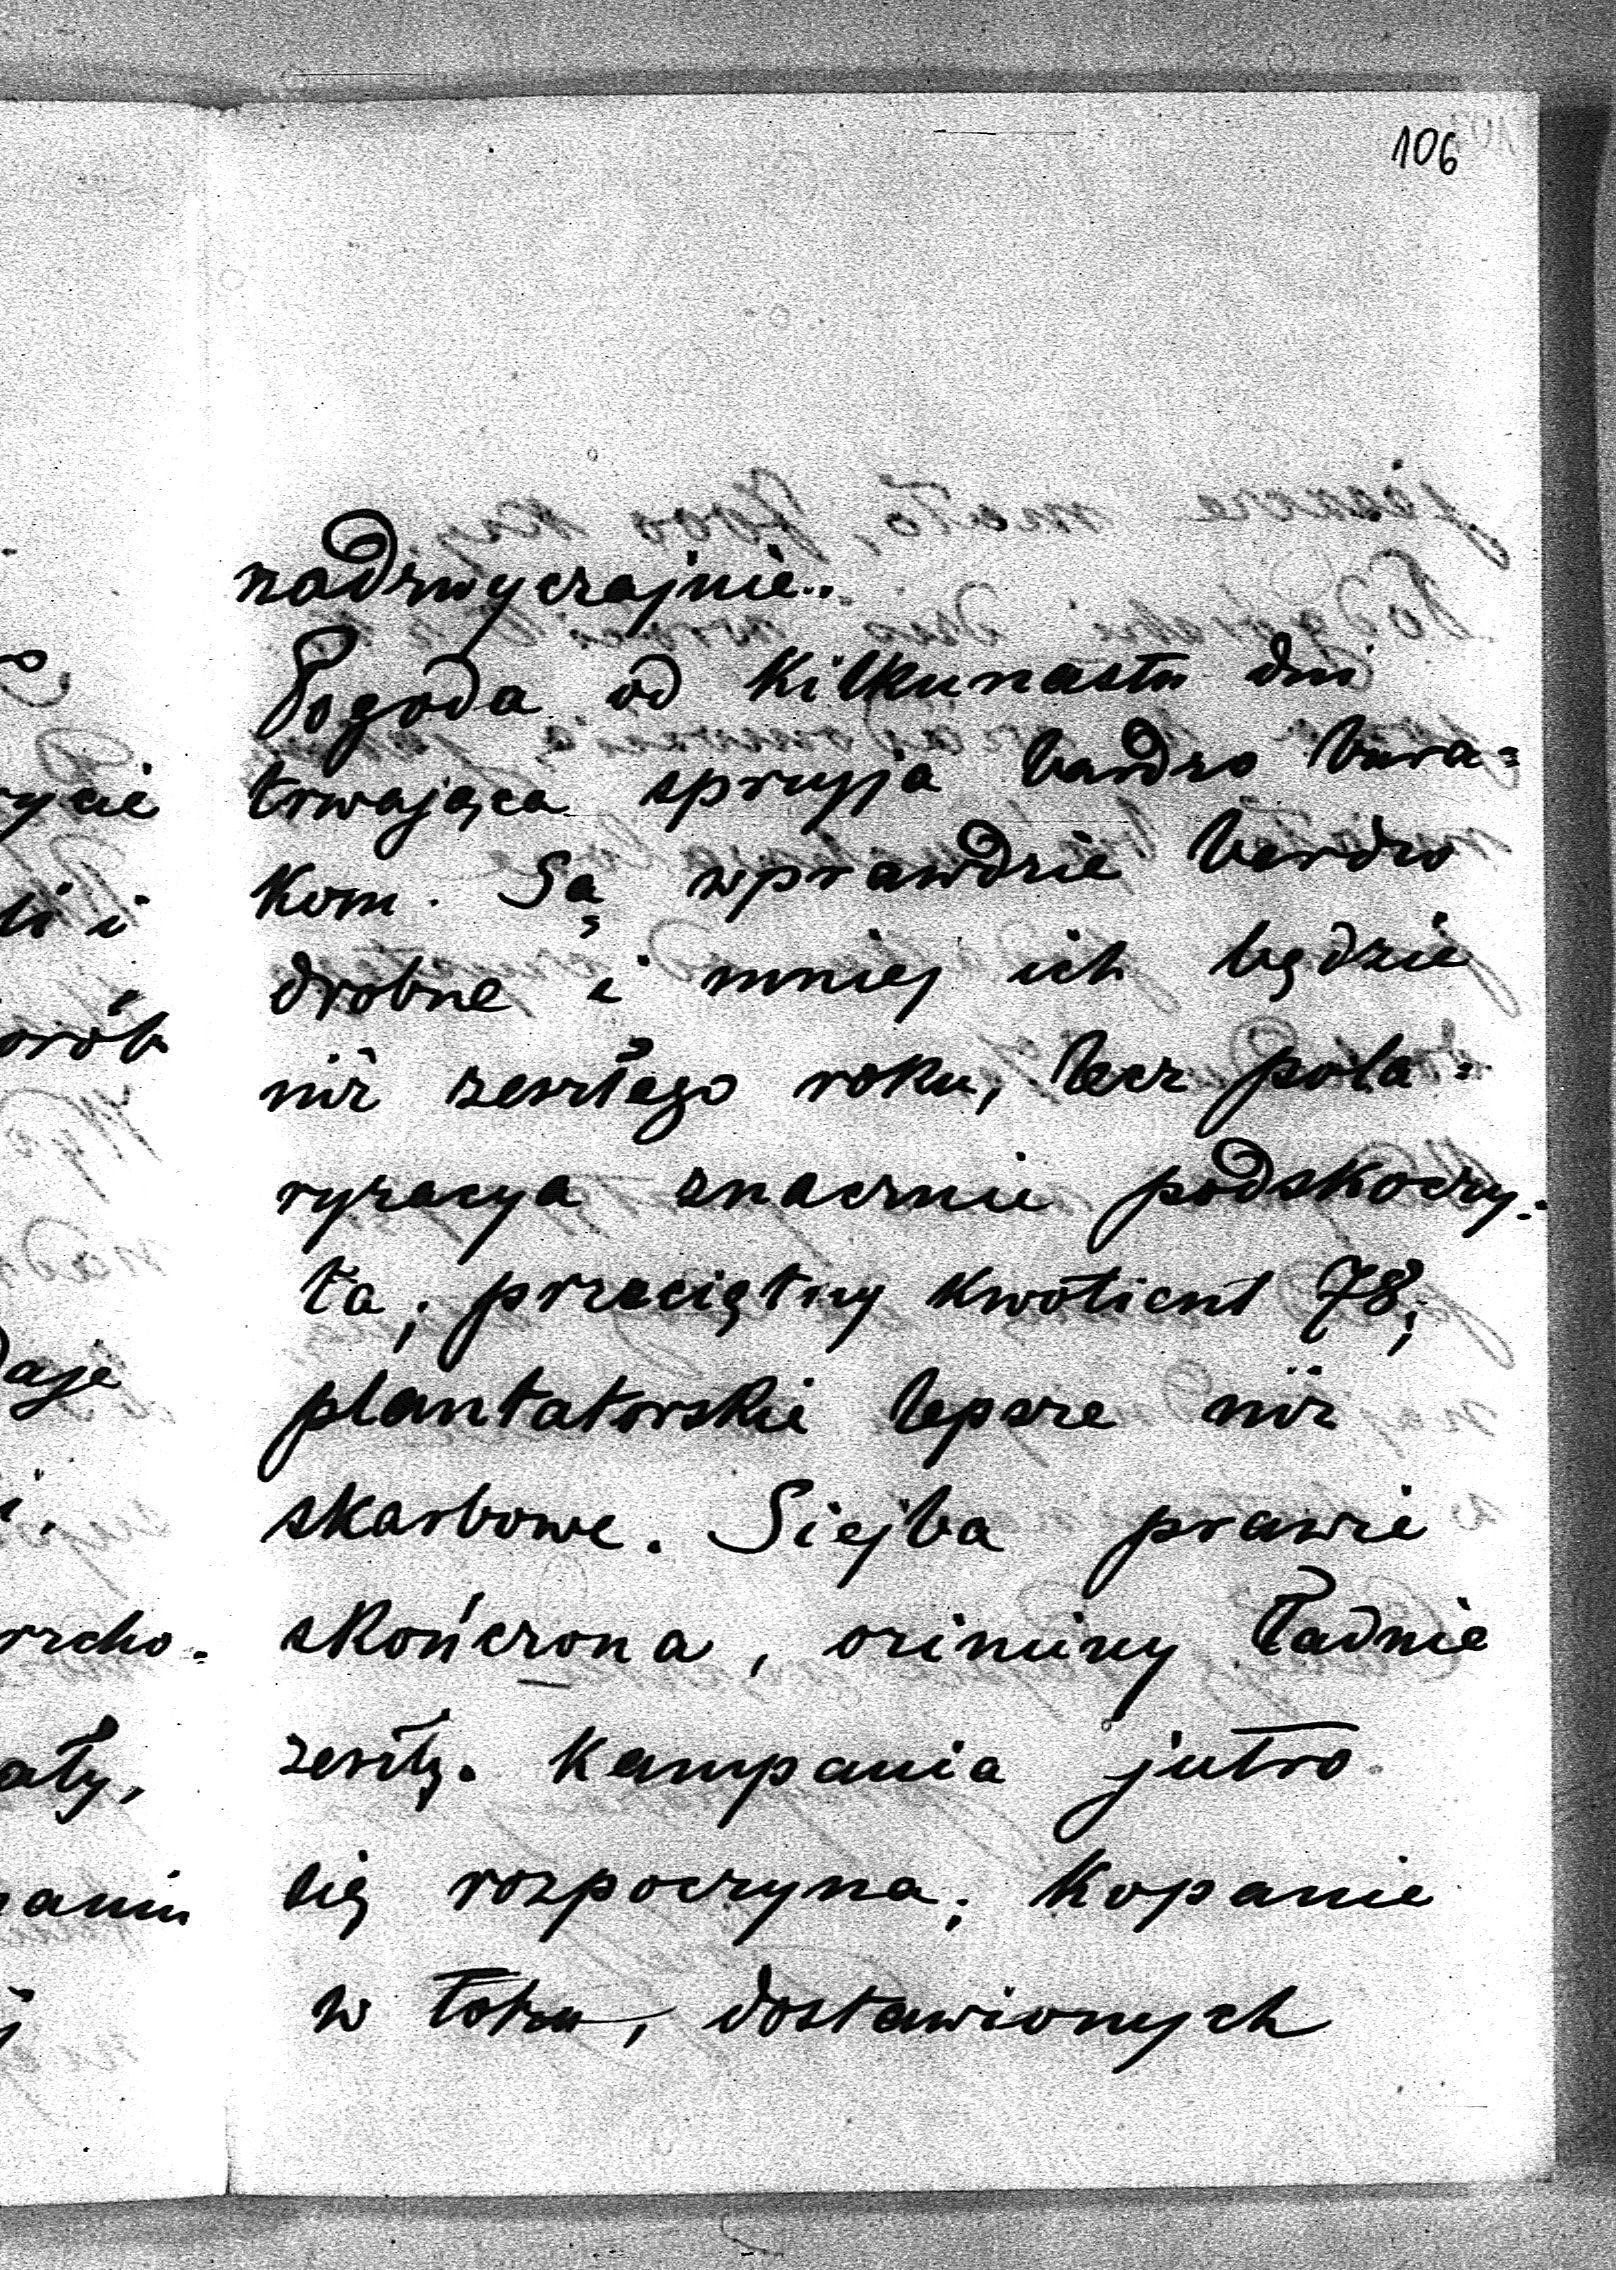 106
nadzwyczajnie..
Pogoda od kilkunastu dni
trwająca sprzyja bardzo bura=
kom. Są wprawdzie bardzo
drobne i mniej ich będzie
niż zeszłego roku, lecz pola=
ryzacya znacznie podskoczy=
ła; przeciętny kwotient 78;
plantatorskie lepsze niż
skarbowe. Siejba prawie
skończona, oziminy ładnie
zeszły. Kampania jutro
się rozpoczyna; kopanie
w toku, dostawionych
ycie
li i
orób
daje
i.
rzcho=
ały,
aniu